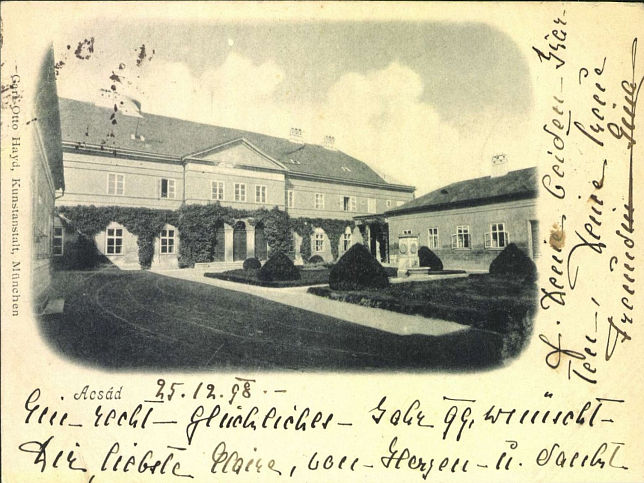 Carl Otto Hayd, Kunstanstalt, München
Acsád 25.12.98.-
Ein recht- glückliches- Jahr 99. wünscht-
Dir, liebste Claire, von- Herzen- u. dankt
f. Deine beiden- Kar-
ten, Deine treue
Freundin